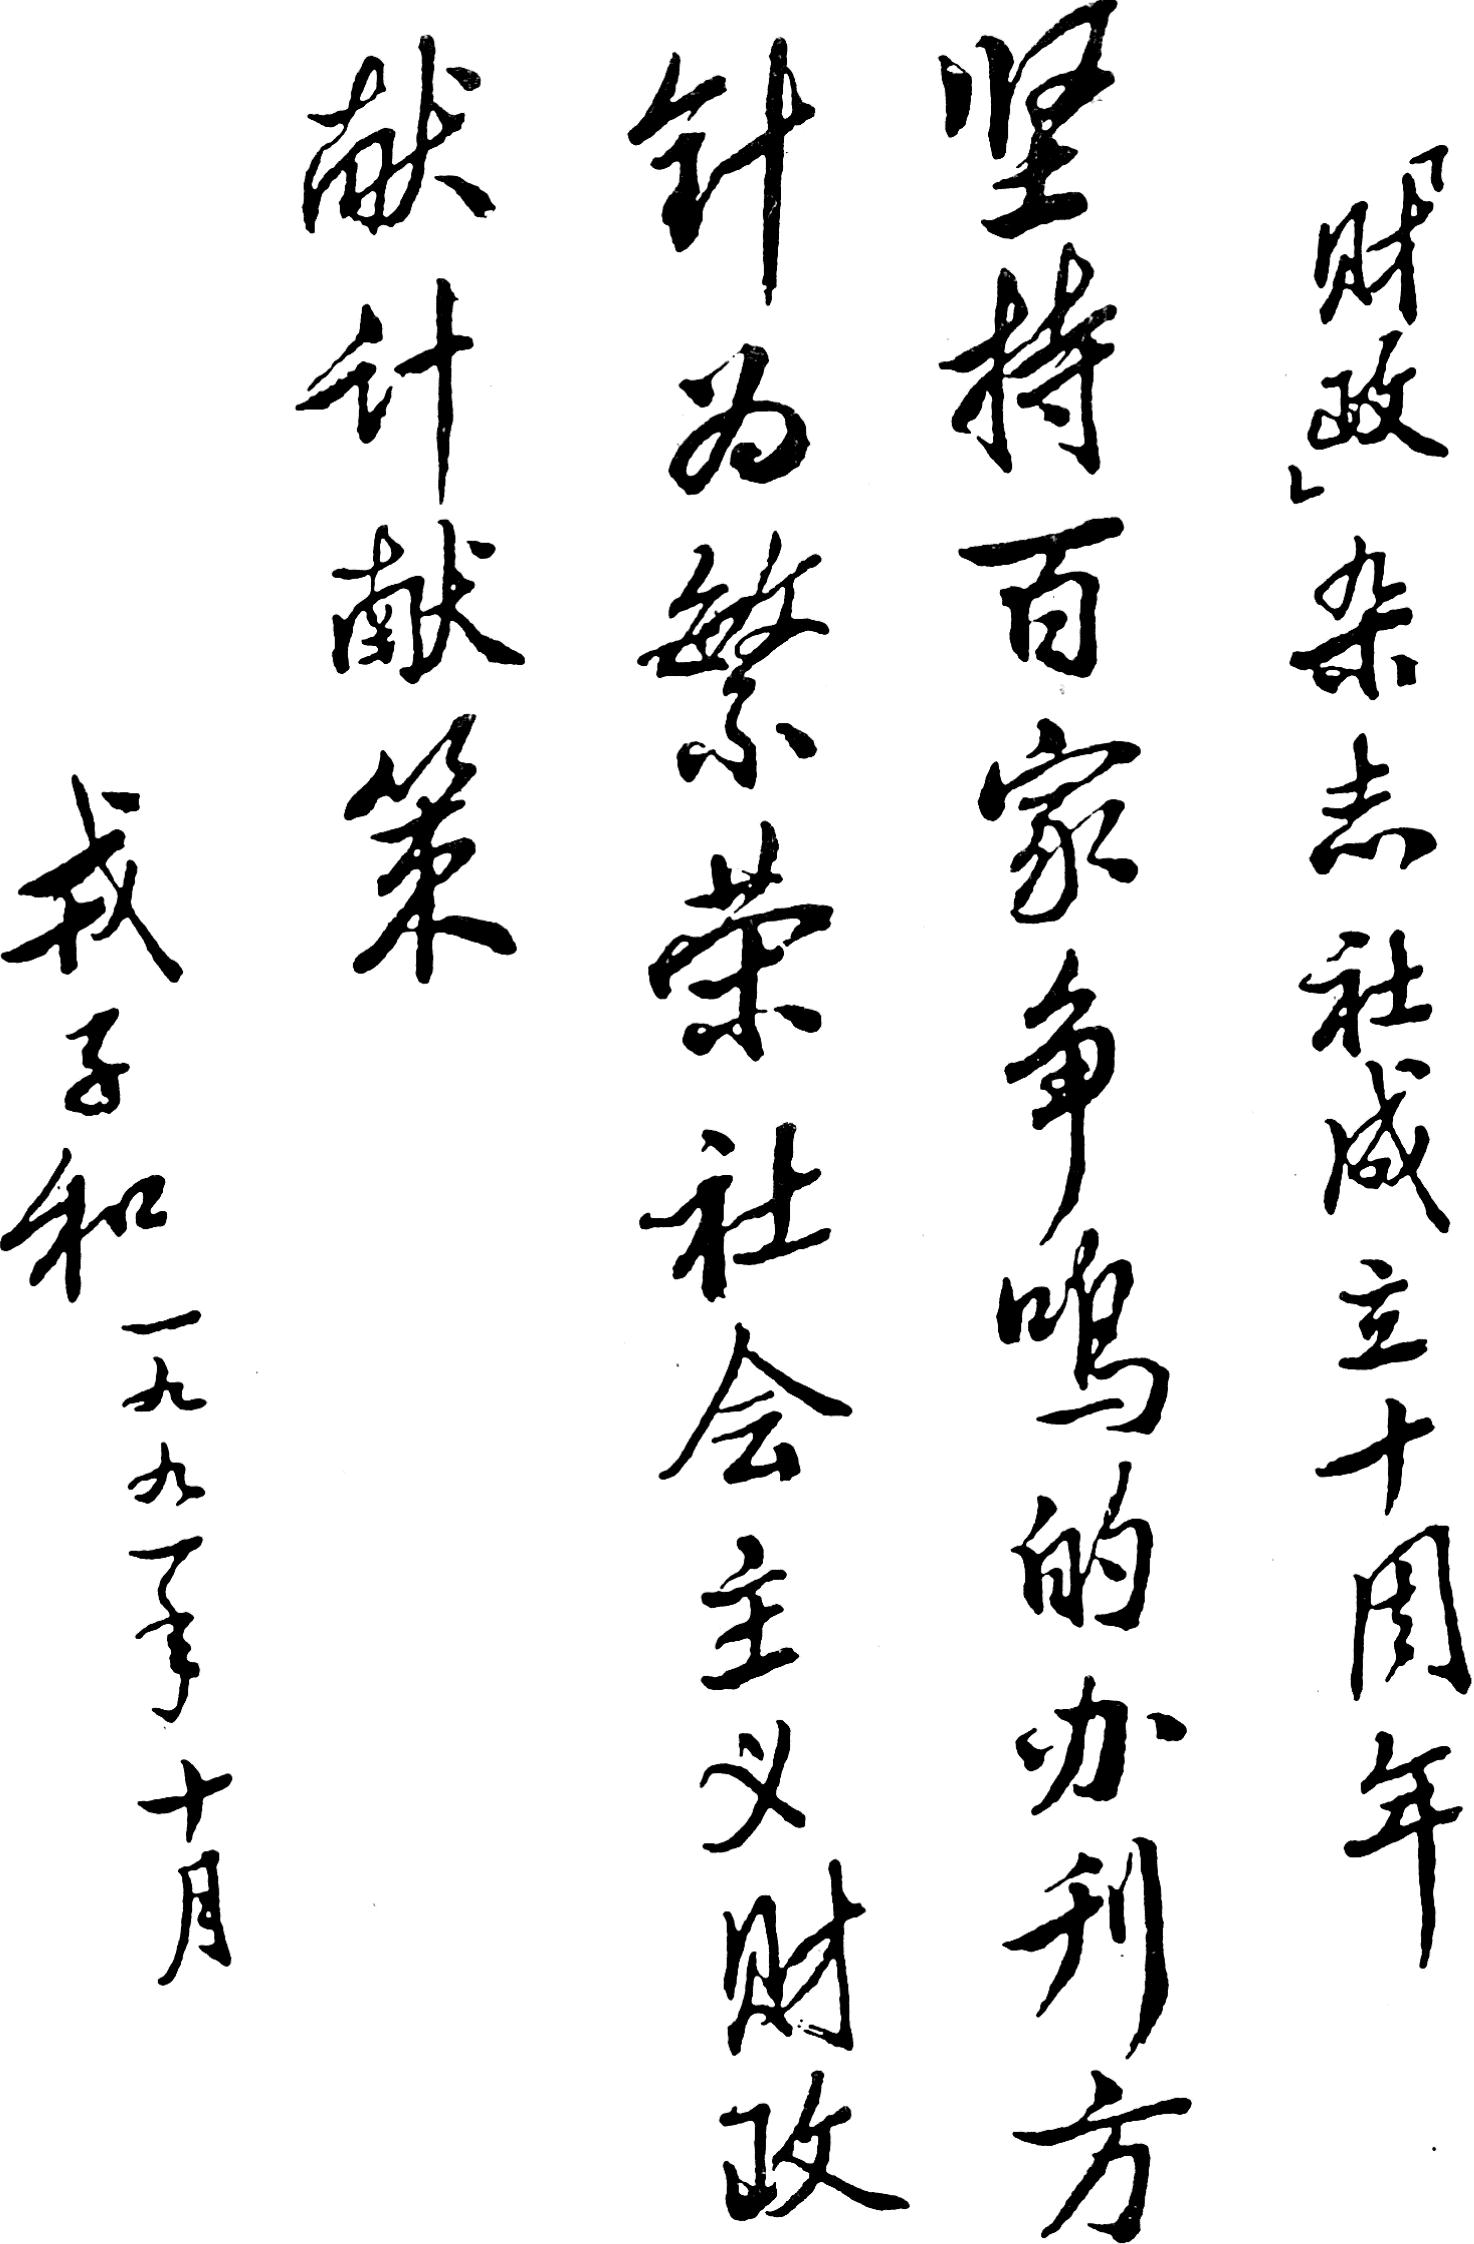 「财政」杂志社成立十周年
坚持百家争鸣的办刊方
针为繁荣社会主义财政
献计献策
戎子和
一九九一年十月